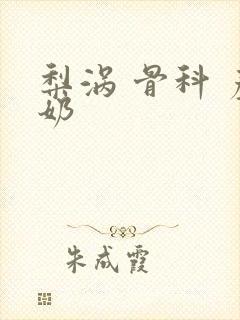 梨涡 骨科
奶
朱成霞